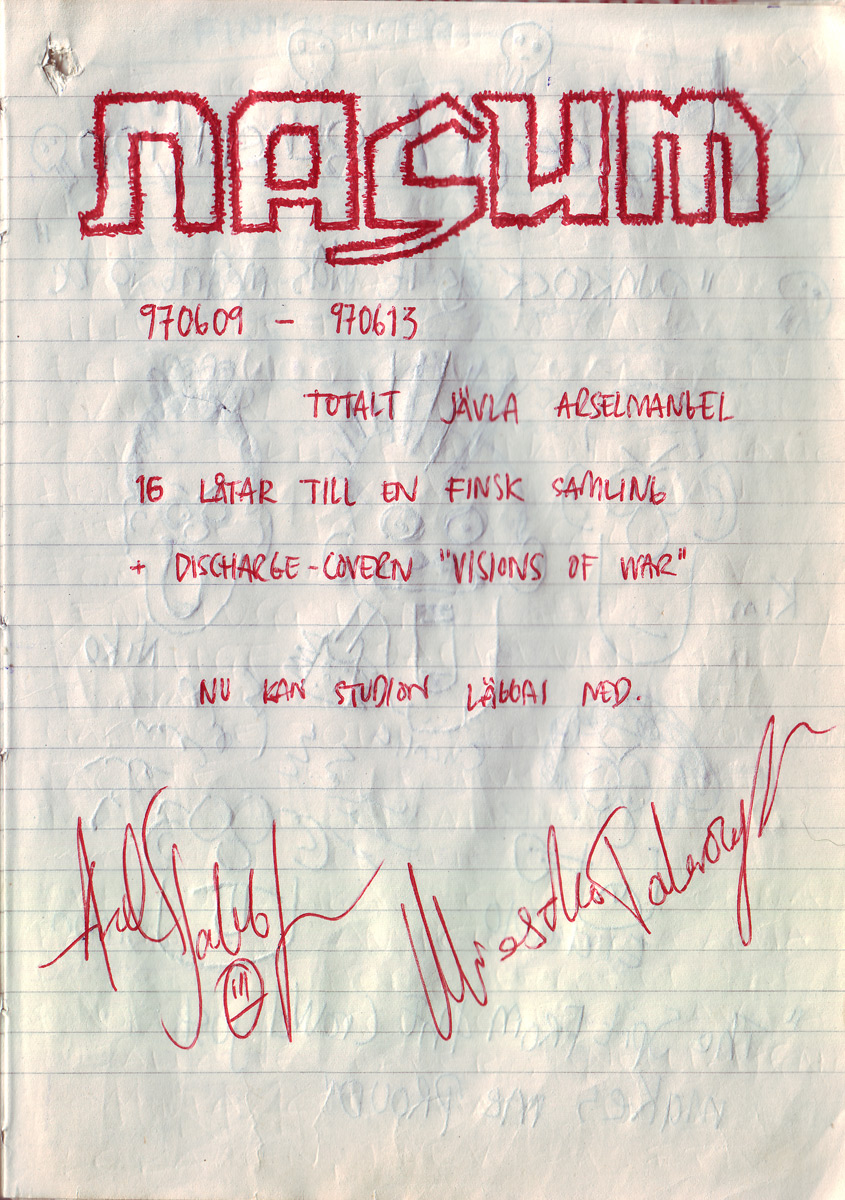 NASUM
970609 - 970613
TOTALT JÄVLA ARSELMANGEL
16 LÅTAR TILL EN FINSK SAMLING
+ DISCHARGE-COVERN "VISIONS OF WAR"
NU KAN STUDION LÄGGAS NED.
Mieszko Talarczyk